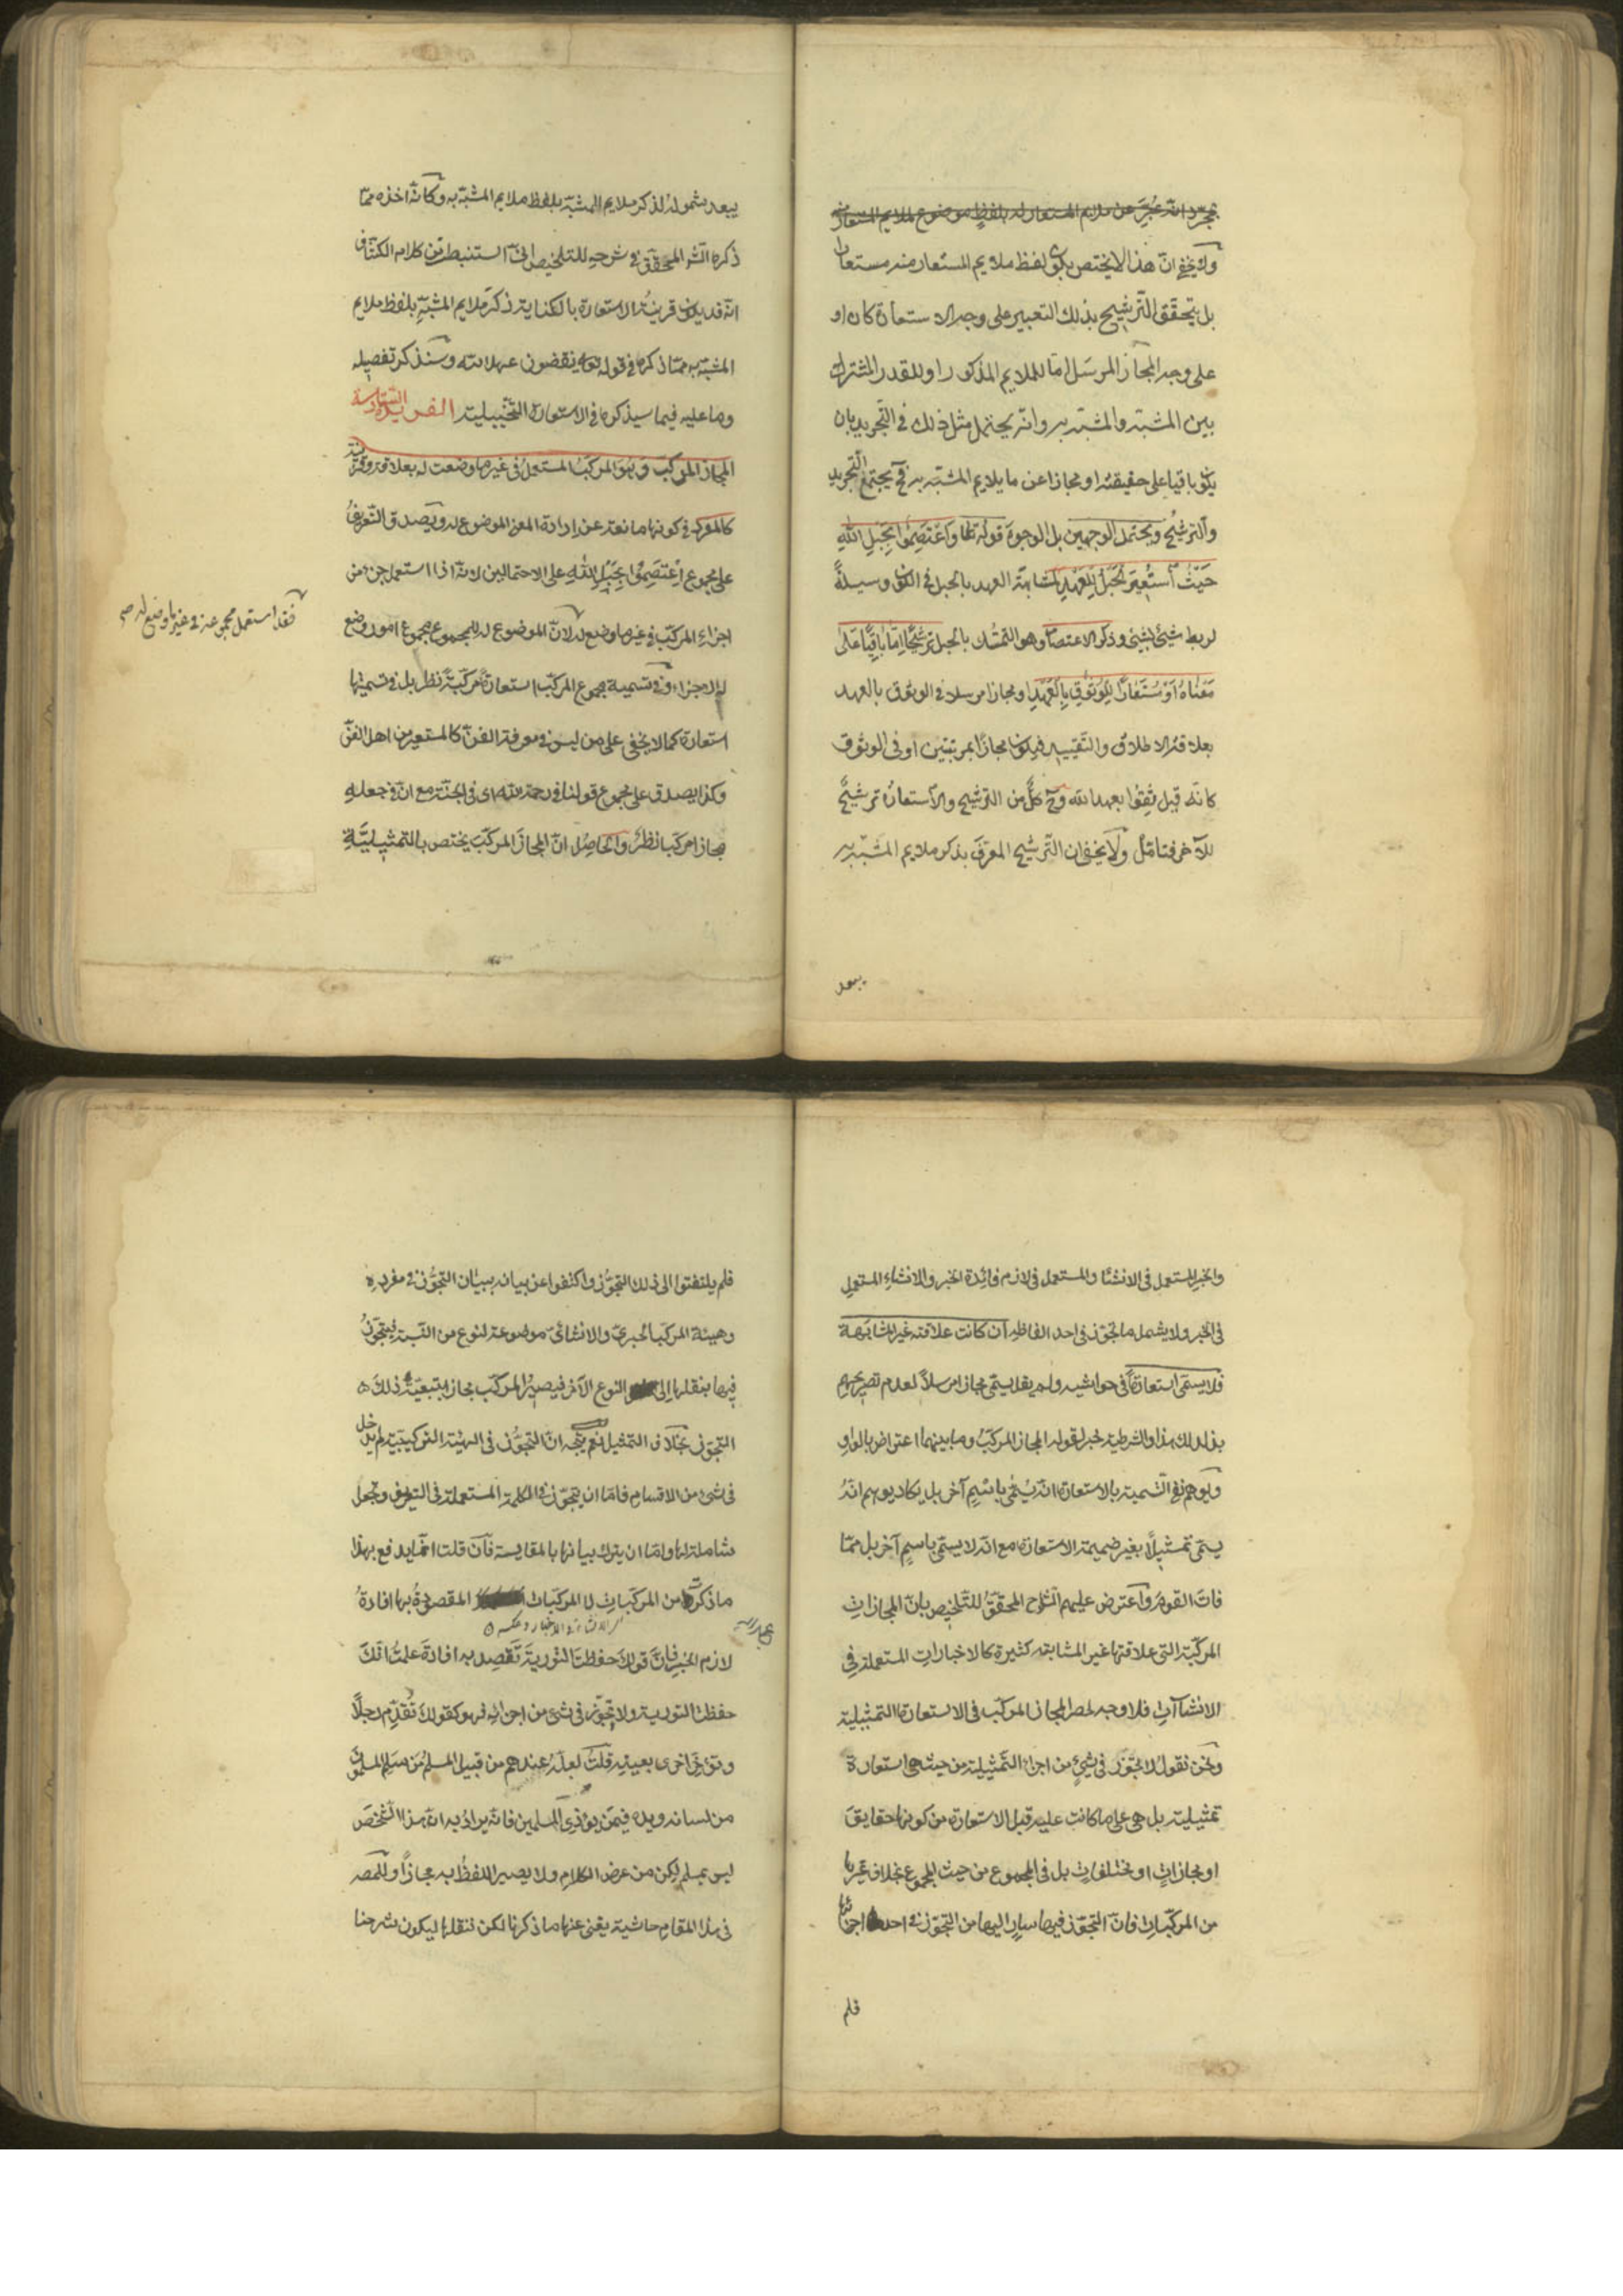 بمجرد انه عبر عن ملايم المستعار له بلفظ موضوع لملايم المستعار منه
ولا يخفى ان هذا لا يختص بكون لفظ ملايم المستعار منه مستعارا
بل يتحقق الترشيح بذلك التعبير على وجه الاستعارة كان او
على وجه المجاز المرسل اما للملايم المذكور او للقدر المشترك
بين المشبه والمشبه به وانه يحتمل مثل ذلك في التجريد بان
يكون باقيا على حقيقته او مجازا عن ما يلايم المشبه به فح يجتمع التجريد
والترشيح ويحتمل الوجهين بل الوجوه قوله تعا واعتصموا بحبل الله
حيث استعير الحبل للعهد لمشابهة العهد بالحبل في الكون وسيلة
لربط شيئ بشيئ وذكر الاعتصام وهو التمسك بالحبل ترشيحا اما باقيا على
معناه او مستعارا للوثوق بالعهد او مجازا مرسلا في الوثوق بالعهد
بعلاقة الاطلاق والتقييد فيكون مجازا بمرتبتين او في الوثوق
كانه قيل ثقوا بعهد الله وح كل من الترشيح والاستعارة ترشيح
للآخر فتامل ولا يخفى ان الترشيح المعرف بذكر ملايم المشبه به
يبعد
يبعد شموله لذكر ملايم المشبه بلفظ ملايم المشبه به وكانه اخذه مما
ذكره الش المحقق في شرحه للتلخيص انه استنبط من كلام الكشاف
انه قد يكون قرينة الاستعارة بالكناية ذكر ملايم المشبه بلفظ ملايم
المشبه به مما ذكره في قوله تعا ينقضون عهد الله وسنذكر تفصيله
وما عليه فيما سيذكره في الاستعارة التخييلية الفريدة السادسة
المجاز المركب وهو المركب المستعمل في غير ما وضعت له بعلاقة وقرينة
كالمفرد في كونها مانعة عن ارادة المعنى الموضوع له ويصدق التعريف
على مجموع اعتصموا بحبل الله على الاحتمالين لانه اذا استعمل جزء من
اجزاء المركب في غير ما وضع له لان الموضوع له للمجموع مجموع امور وضع
فقد استعمل مجموعه في غير ما وضع له صح
له الاجزاء وفي تسمية مجموع المركب استعارة مركبة نظر بل في تسميتها
استعارة كما لا يخفى على من ليس في معرفة الفن كالمستعير من اهل الفن
وكذا يصدق على مجموع قولنا في رحمة الله اى في الجنة مع ان في جعله
مجازا مركبا نظر والحاصل ان المجاز المركب يختص بالتمثيلية
والخبر المستعمل في الانشا والمستعمل في لازم فائدة الخبر والانشاء المستعمل
في الخبر ولا يشمل ما تجوز في احد الفاظه ان كانت علاقته غير المشابهة
فلا يسمى استعارة في حواشيه ولم يقل يسمى مجازا مرسلا لعدم تصريحهم
بذلك هذا والشرطية خبر لقوله المجاز المركب وما بينهما اعتراض بالواو
ويوهم نفي التسمية بالاستعارة انه يسمى باسم آخر بل يكاد يوهم انه
يسمى تمثيلا بغير ضميمة الاستعارة مع انه لا يسمى باسم آخر بل مما
فات القوم واعترض عليهم الشارح المحقق للتلخيص بان المجازات
المركبة التى علاقتها غير المشابهة كثيرة كالاخبارات المستعملة في
الانشاآت فلا وجه لحصر المجاز المركب في الاستعارة التمثيلية
ونحن نقول لا تجوز في شيئ من اجزاء التمثيلية من حيث هى استعارة
تمثيلية بل هى على ما كانت عليه قبل الاستعارة من كونها حقايق
او مجازات او مختلفات بل في المجموع من حيث المجموع بخلاف غيرها
من المركبات فان التجوز فيها سار اليها من التجوز في احد اجزائها
فلم
فلم يلتفتوا الى ذلك التجوز واكتفوا عن بيانه ببيان التجوز في مفرده
وهيئة المركب الخبرى والانشائى موضوعة لنوع من النسبة فيتجوز
فيها بنقلها الى النوع الآخر فيصير المركب مجازا بتبعية ذلك
التجوز بخلاف التمثيل نعم يتجه ان التجوز في الهيئة التركيبية لم يدخل
في شئ من الاقسام فاما ان يتجوز في الكلمة المستعملة في التعريف وتجعل
شاملة لها واما ان يترك بيانها بالمقايسة فان قلت انما يدفع بهذا
ما ذكره من المركبات لا المركبات المقصودة بها افادة
لازم الخبر فان قولك حفظت التورية تقصد به افادة علمك انك
حفظت التورية ولا تجوز في شئ من اجزائه فهو كقولك تقدم رجلا
وتؤخر اخرى بعينه قلت لعله عندهم من قبيل المسلم من سلم المسلمون
من لسانه ويده فيمن يؤذى المسلمين فانه يراد به ان هذا الشخص
ليس بمسلم لكن من عرض الكلام ولا يصير اللفظ به مجازا وللمصه
في هذا المقام حاشية يغنى عنها ما ذكرنا لكن ننقلها ليكون شرحنا